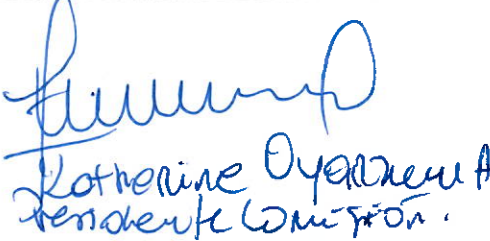 Katherine Oyarzún A
Presidente Comisión.